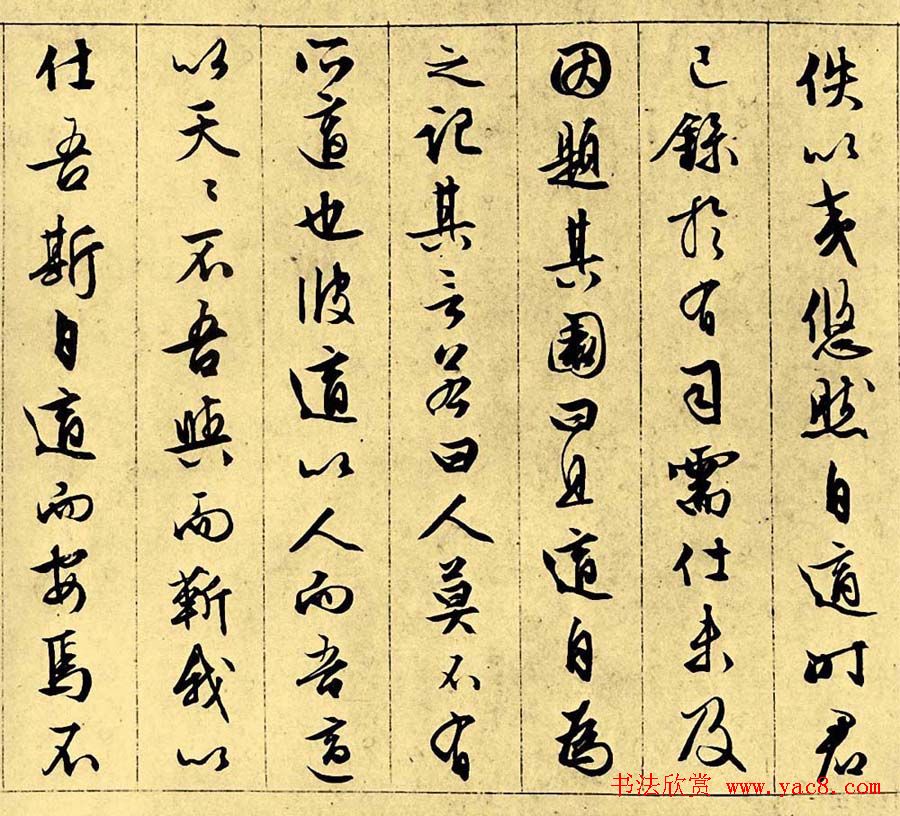 佚以夷悠然自適时君
已錄於有司需仕未及
因題其園曰且適自為
之記其言若曰人莫不有
所適也彼適以人而吾適
以天〻不吾與而蘄我以
仕吾斯自適而安焉不
书法欣赏 www.yac8.com